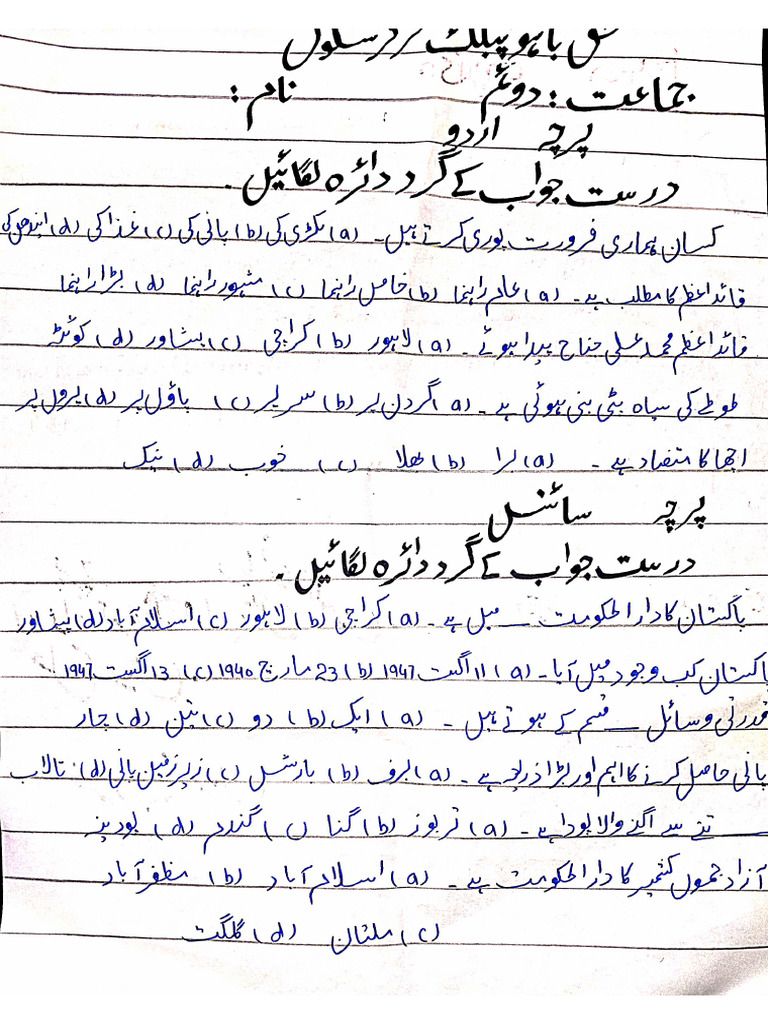 باہو پبلک گرلز سکول
جماعت : دوئم نام :
پرچہ اردو
درست جواب کے گرد دائرہ لگائیں ۔
کسان ہماری ضرورت پوری کرتے ہیں ۔ (a) لکڑی کی (b) پانی کی (c) غذا کی (d) ایندھن کی
قائداعظم کا مطلب ہے ۔ (a) عام راہنما (b) خاص راہنما (c) مشہور راہنما (d) بڑا راہنما
قائداعظم محمد علی جناح پیدا ہوئے ۔ (a) لاہور (b) کراچی (c) پشاور (d) کوئٹہ
طوطے کی سیاہ پٹی بنی ہوئی ہے ۔ (a) گردن پر (b) سر پر (c) پاؤں پر (d) پروں پر
اچھا کا متضاد ہے ۔ (a) برا (b) بھلا (c) خوب (d) نیک
پرچہ سائنس
درست جواب کے گرد دائرہ لگائیں ۔
پاکستان کا دارالحکومت ــــ میں ہے ۔ (a) کراچی (b) لاہور (c) اسلام آباد (d) پشاور
پاکستان کب وجود میں آیا ۔ (a) 11 اگست 1947 (b) 23 مارچ 1940 (c) 13 اگست 1947
قدرتی وسائل ــــ قسم کے ہوتے ہیں ۔ (a) ایک (b) دو (c) تین (d) چار
پانی حاصل کرنے کا اہم اور بڑا ذریعہ ہے ۔ (a) برف (b) بارش (c) زیر زمین پانی (d) تالاب
ــــ تنے سے اگنے والا پودا ہے ۔ (a) تربوز (b) گنا (c) گندم (d) پودینہ
آزاد جموں کشمیر کا دارالحکومت ہے ۔ (a) اسلام آباد (b) مظفر آباد
(c) ملتان (d) گلگت